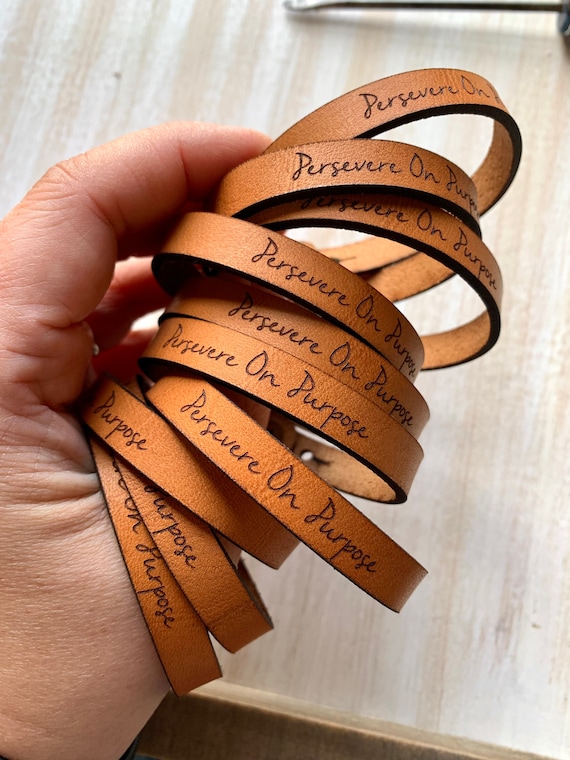 Persevere On
Persevere On Purpose
Persevere On Purpose
Persevere On Purpose
Persevere On Purpose
Persevere On Purpose
Persevere On Purpose
Purpose
Purpose
On Purpose